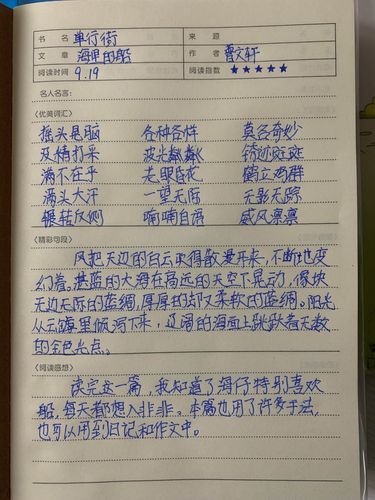 书 名 单行街 来 源
文 章 海里的船 作 者 曹文轩
阅读时间 9.19 阅读指数 ★★★★★
名人名言:
〈优美词汇〉
摇头晃脑 各种各样 莫名奇妙
没精打采 波光粼粼 锈迹斑斑
满不在乎 老眼昏花 鹤立鸡群
满头大汗 一望无际 无影无踪
辗转反侧 喃喃自语 威风凛凛
〈精彩句段〉
风把天边的白云吹得散漫开来,不断地变
幻着。湛蓝的大海在高远的天空下晃动,像块
无边无际的蓝绸,厚厚的却又柔软的蓝绸。阳光
从云缝里倾泻下来,辽阔的海面上跳跃着无数
的金色光点。
〈阅读感想〉
读完这一篇,我知道了海仔特别喜欢
船,每天都想入非非。本篇也用了许多手法,
也可以用到日记和作文中。